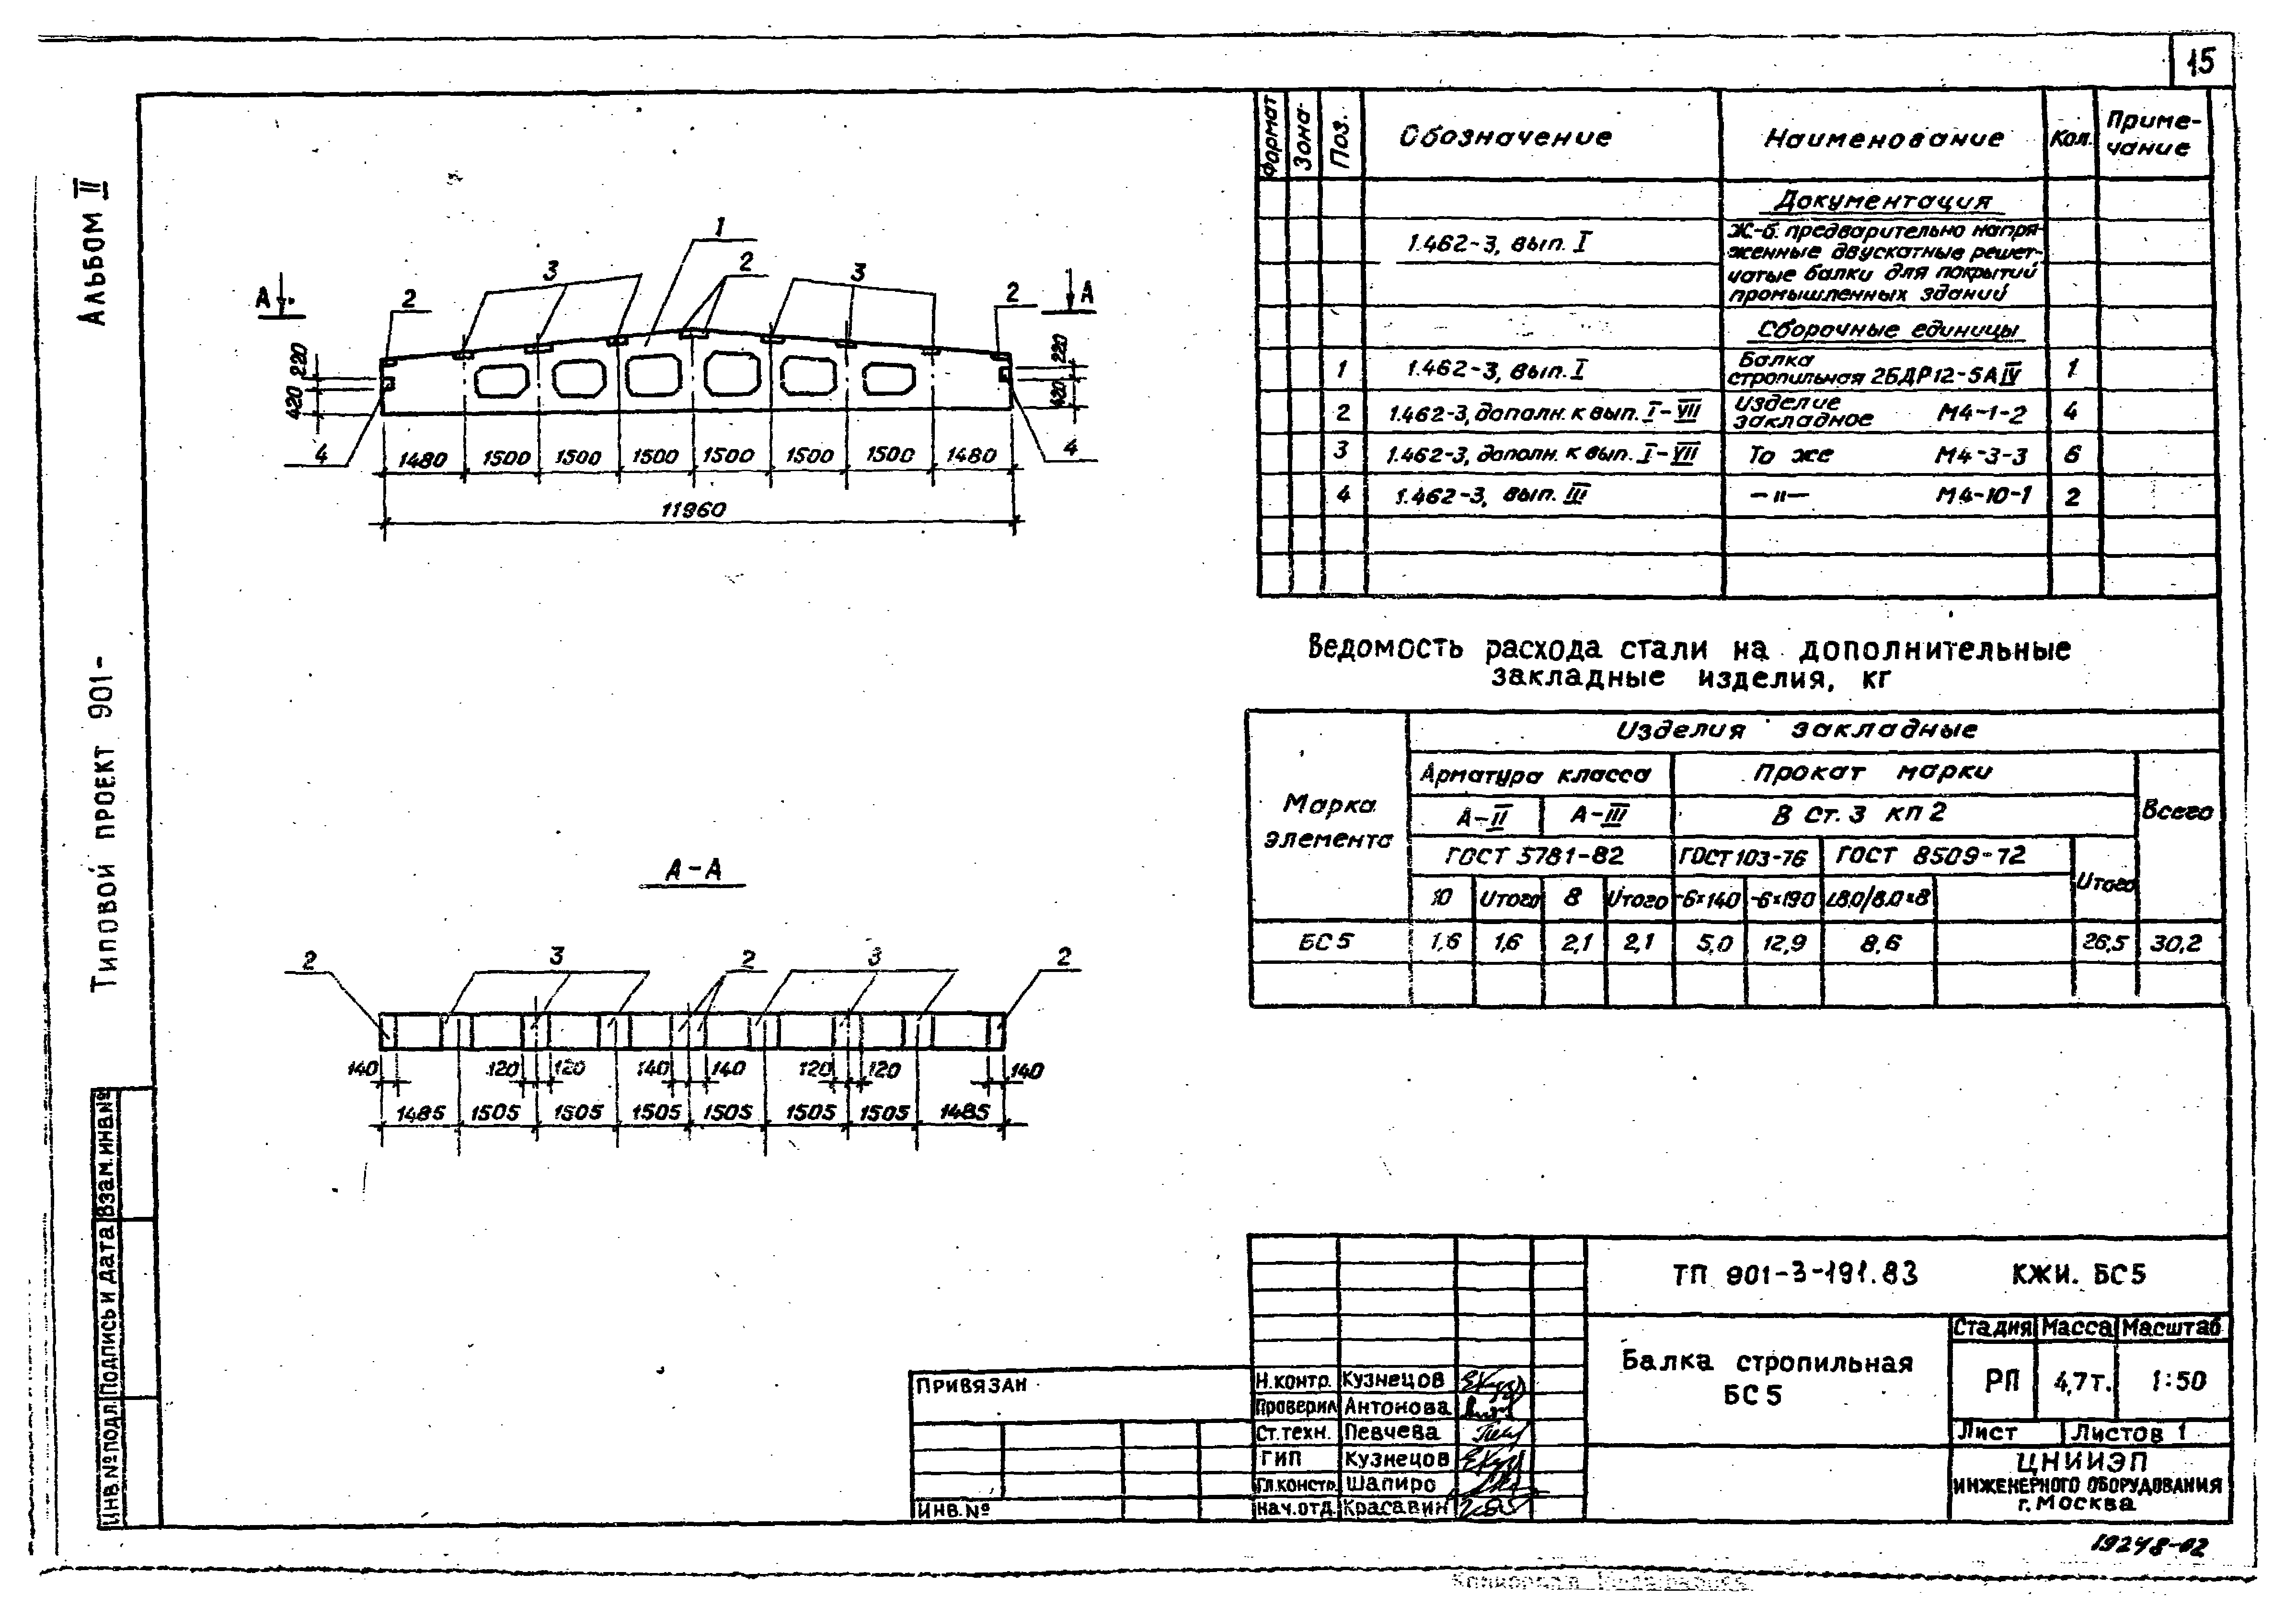 15
Альбом II
Типовой проект 901-
Инв.№ подл.
Подпись и дата
Взам.инв.№
1
2
3
3
2
2
А
А
220
420
220
420
4
4
1480 1500 1500 1500 1500 1500 1500 1480
11960
А-А
2 3 2 3 2
140 120 120 140 140 120 120 140
1485 1505 1505 1505 1505 1505 1505 1485
Формат Зона Поз. Обозначение Наименование Кол. Приме-
чание
Документация
1.462-3, вып. I
Ж-б. предварительно напря-
женные двускатные решет-
чатые балки для покрытий
промышленных зданий
Сборочные единицы
1 1.462-3, вып. I Балка
стропильная 2БДР12-5АIV 1
2 1.462-3, дополн. к вып. I-VII Изделие
закладное М4-1-2 4
3 1.462-3, дополн. к вып. I-VII То же М4-3-3 6
4 1.462-3, вып. III —"— М4-10-1 2
Ведомость расхода стали на дополнительные
закладные изделия, кг
Марка
элемента
Изделия закладные
Арматура класса Прокат марки Всего
А-II А-III В Ст.3 кп2
ГОСТ 5781-82 ГОСТ 103-76 ГОСТ 8509-72 Итого
10 Итого 8 Итого -6×140 -6×190 L80/8.0×8
БС5 1,6 1,6 2,1 2,1 5,0 12,9 8,6 26,5 30,2
ТП 901-3-191.83 КЖИ. БС5
Балка стропильная
БС5
Стадия Масса Масштаб
РП 4,7т. 1:50
Лист Листов 1
ЦНИИЭП
инженерного оборудования
г. Москва
Привязан
Инв.№
Н.контр. Кузнецов
Проверил Антонова
Ст.техн. Певчева
ГИП Кузнецов
Гл.констр. Шапиро
Нач.отд. Красавин
19248-02